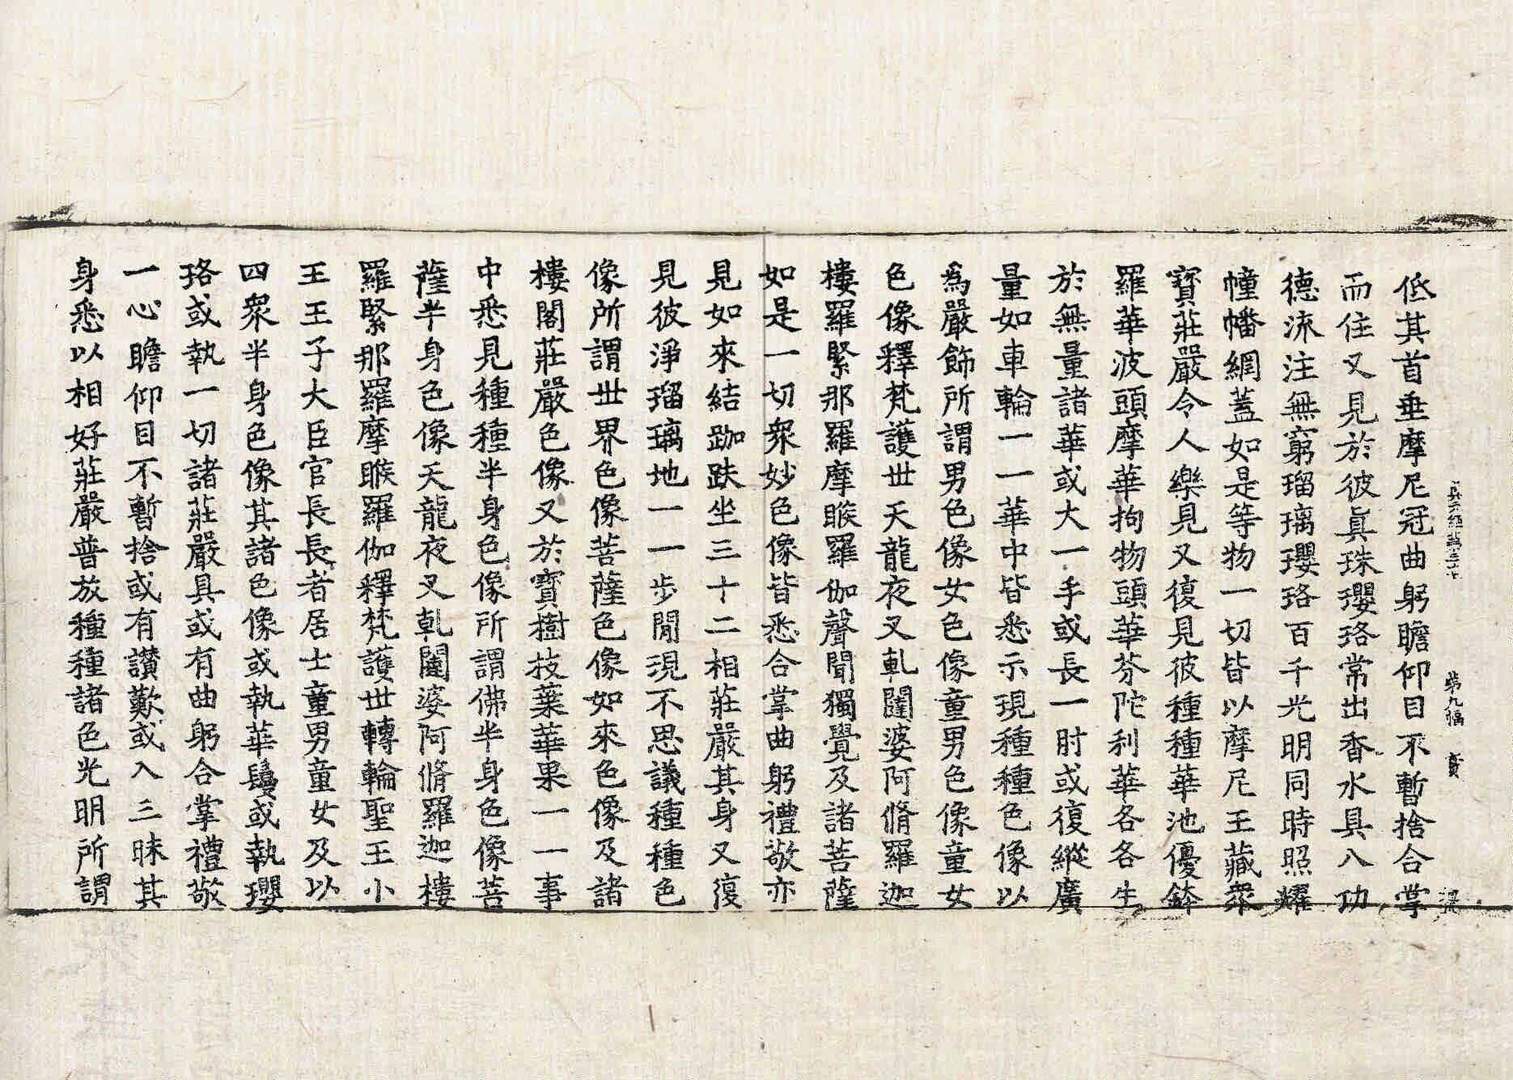 第九幅
低其首垂摩尼冠曲躬瞻仰目不暫捨合掌
而住又見於彼眞珠瓔珞常出香水具八功
德流注無窮瑠璃瓔珞百千光明同時照耀
幢幡網蓋如是等物一切皆以摩尼王藏衆
寶莊嚴令人樂見又復見彼種種華池優鉢
羅華波頭摩華拘物頭華芬陀利華各各生
於無量諸華或大一手或長一肘或復縱廣
量如車輪一一華中皆悉示現種種色像以
爲嚴飾所謂男色像女色像童男色像童女
色像釋梵護世天龍夜叉乹闥婆阿脩羅迦
樓羅緊那羅摩睺羅伽聲聞獨覺及諸菩薩
如是一切衆妙色像皆悉合掌曲躬禮敬亦
見如來結跏趺坐三十二相莊嚴其身又復
見彼淨瑠璃地一一步閒現不思議種種色
像所謂世界色像菩薩色像如來色像及諸
樓閣莊嚴色像又於寶樹枝葉華果一一事
中悉見種種半身色像所謂佛半身色像菩
薩半身色像天龍夜叉乹闥婆阿脩羅迦樓
羅緊那羅摩睺羅伽釋梵護世轉輪聖王小
王王子大臣官長長者居士童男童女及以
四衆半身色像其諸色像或執華鬘或執瓔
珞或執一切諸莊嚴具或有曲躬合掌禮敬
一心瞻仰目不暫捨或有讃歎或入三昧其
身悉以相好莊嚴普放種種諸色光明所謂